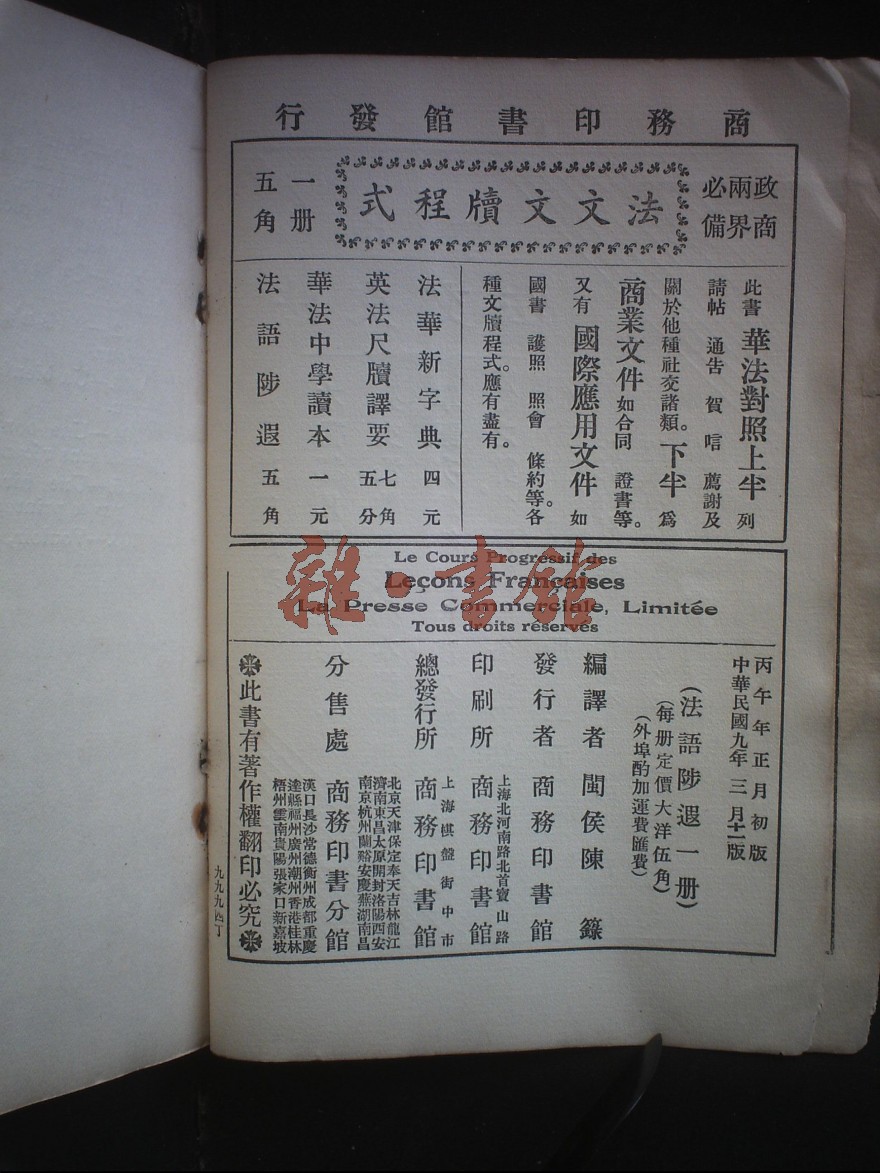 商務印書館發行
政商兩界必備
法文文牘程式
一册五角
此書華法對照上半列
請帖 通告 賀唁 薦謝及
關於他種社交諸類。下半爲
商業文件如合同 證書等。
又有國際應用文件如
國書 護照 照會 條約等。各
種文牘程式。應有盡有。
法華新字典 四元
英法尺牘譯要 七角五分
華法中學讀本 一元
法語陟遐 五角
Le Cours Progressif des
Leçons Françaises
La Presse Commerciale, Limitée
Tous droits réservés
丙午年正月初版
中華民國九年三月十一版
(法語陟遐一册)
(每册定價大洋伍角)
(外埠酌加運費匯費)
編譯者 閩侯陳籙
發行者 商務印書館
印刷所 上海北河南路北首寶山路 商務印書館
總發行所 上海棋盤街中市 商務印書館
分售處 商務印書分館
北京天津保定奉天吉林龍江
濟南東昌太原開封洛陽西安
南京杭州蘭谿安慶蕪湖南昌
漢口長沙常德衡州成都重慶
達縣福州廣州潮州香港桂林
梧州雲南貴陽張家口新嘉坡
此書有著作權翻印必究
九九九四丁
雜·書館